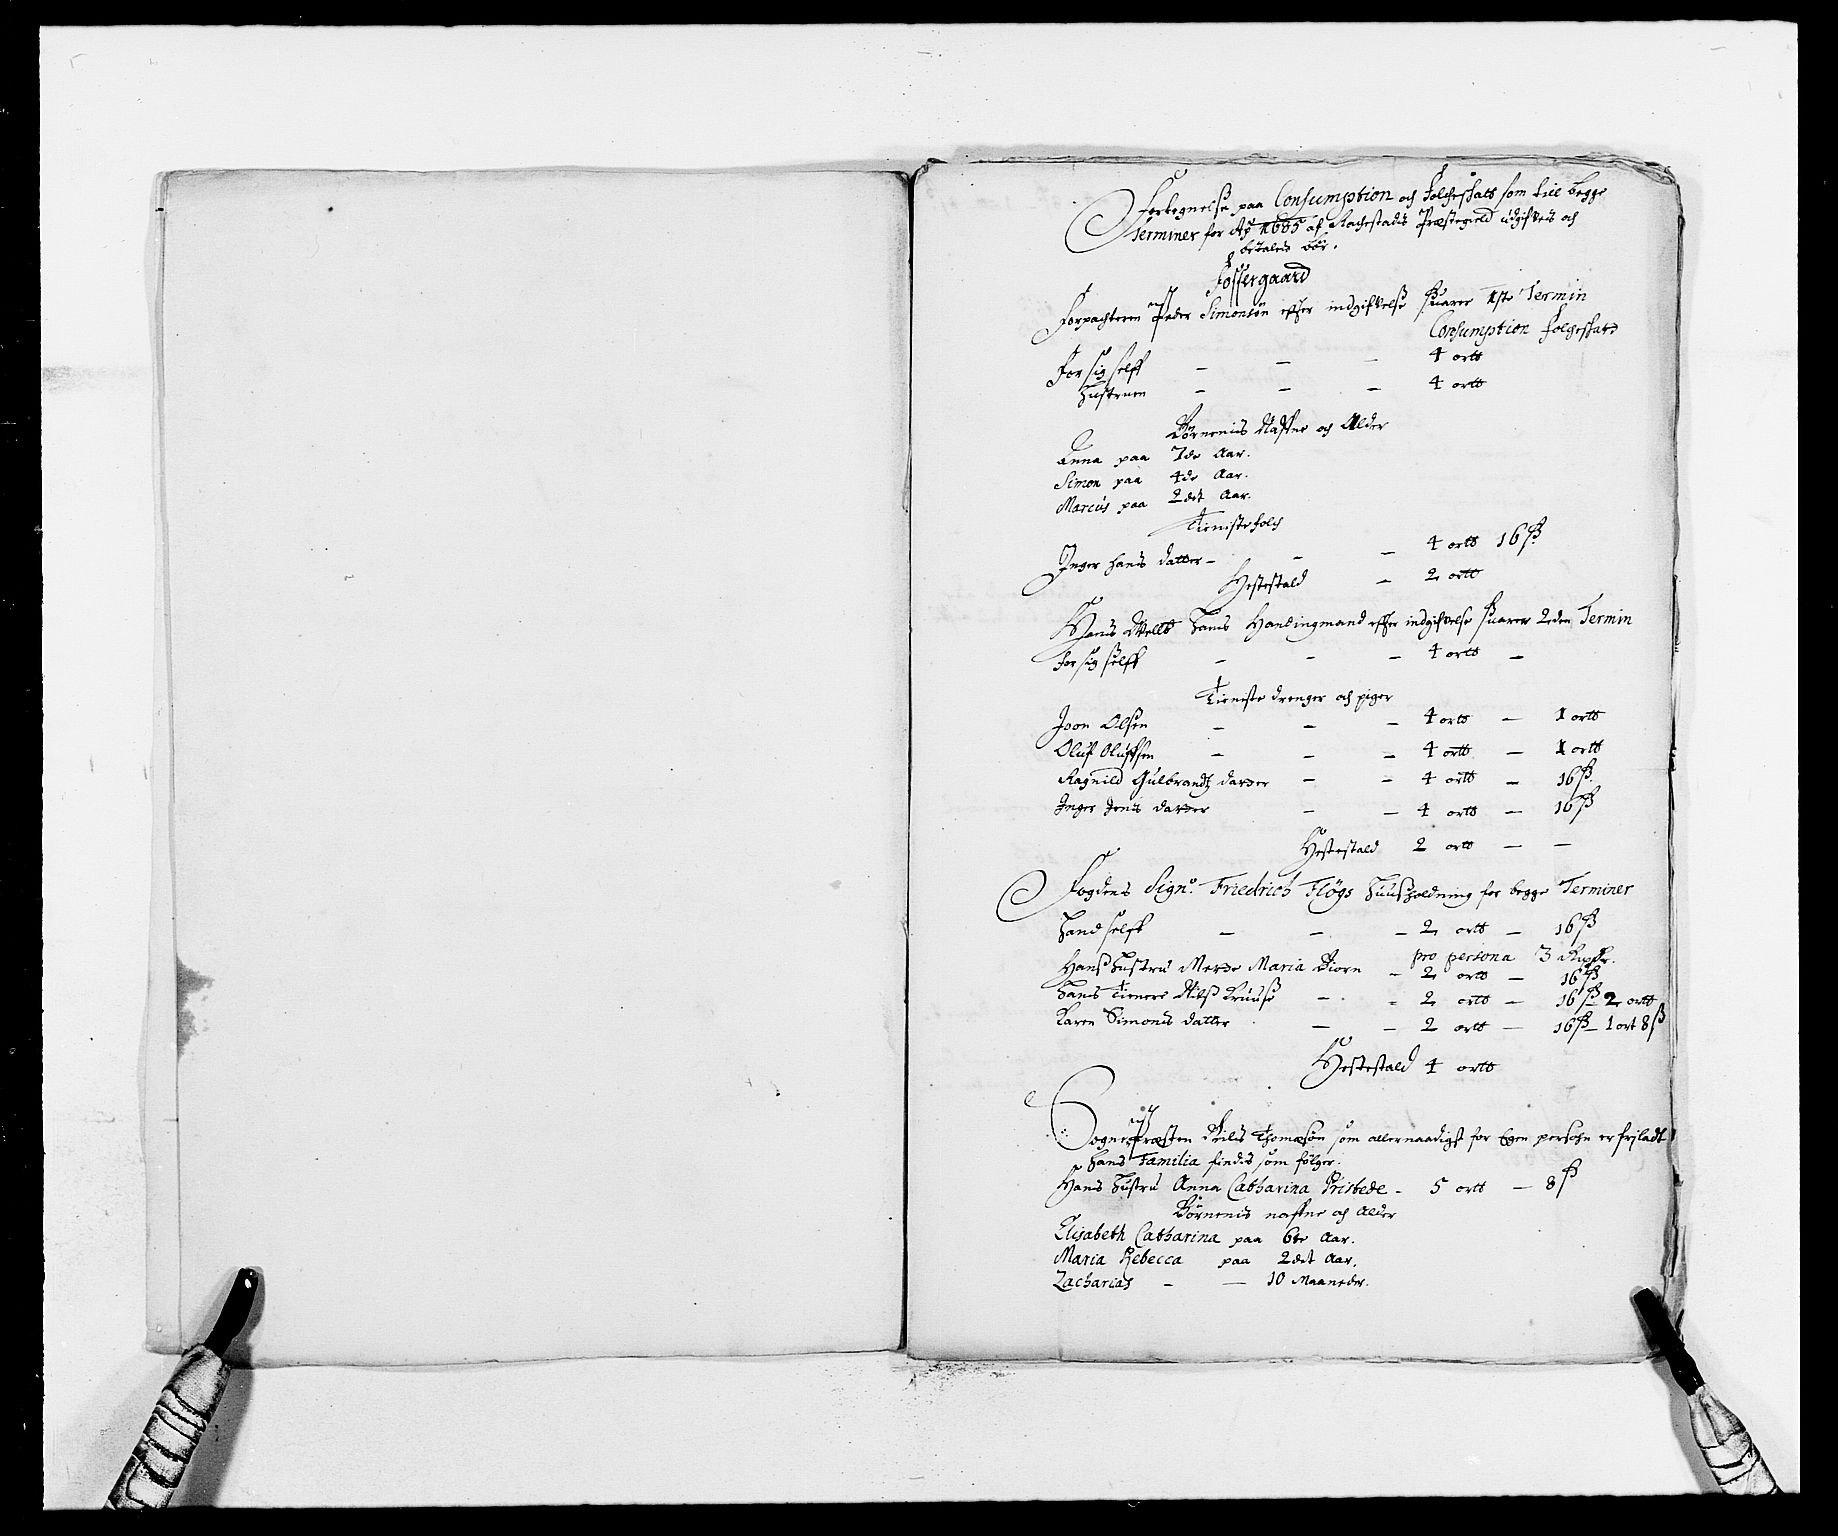 Fortegnelse paa Consumption och Folcheskatt som till begge
Terminer for Aõ 1685 af Rachestads Præstegield udgifves och
betales bør.
Fossergaard
Forpachteren Peder Simonsøn effter indgifvelse suarer 1ste Termin
Consumption Folgeskatt
For sig self - - - 4 ortt
Hustruen - - - 4 ortt
Børnenis Naffne och Alder
Anna paa 7de Aar.
Simon paa 4de Aar.
Marcus paa 2det Aar.
Tienistefolch
Inger Hans datter - - - 4 ortt 16 ß
Hestestald - 2 ortt
Hans Handingmand effter indgifvelse suarer 2den Termin
For sig selff - - - 4 ortt -
Tieniste drenger och piger
Joon Olsen - - - 4 ortt - 1 ortt
Oluf Oluffsen - - - 4 ortt - 1 ortt
Ragnild Gulbrandtz datter - - 4 ortt - 16 ß
Inger Jens datter - - 4 ortt - 16 ß
Hestestald 2 ortt - -
Fogdens Signr. Friedrich Fløgs Huusholdning for begge Terminer
Hand selff - - - 2 ortt - 16 ß
pro persona 3 Rixdr.
Hans Hustru Mette Maria Biorn - 2 ortt - 16 ß
Hans Tienere Nils Kruuse - - 2 ortt - 16 ß - 2 ortt
Karen Simons datter - - 2 ortt - 16 ß - 1 ort 8 ß
Hestestald 4 ortt
Sognepræsten Nils Thomæsøn som allernaadigst for Egen persohn er frjladt
Hans Familia findes som følger.
Hans Hustru Anna Catharina Pristede - 5 ortt - 8 ß
Børnenis naffne och Alder
Elisabeth Catharina paa 6te Aar.
Maria Rebecca paa 2det Aar.
Zacharias - - 10 Maaneder.